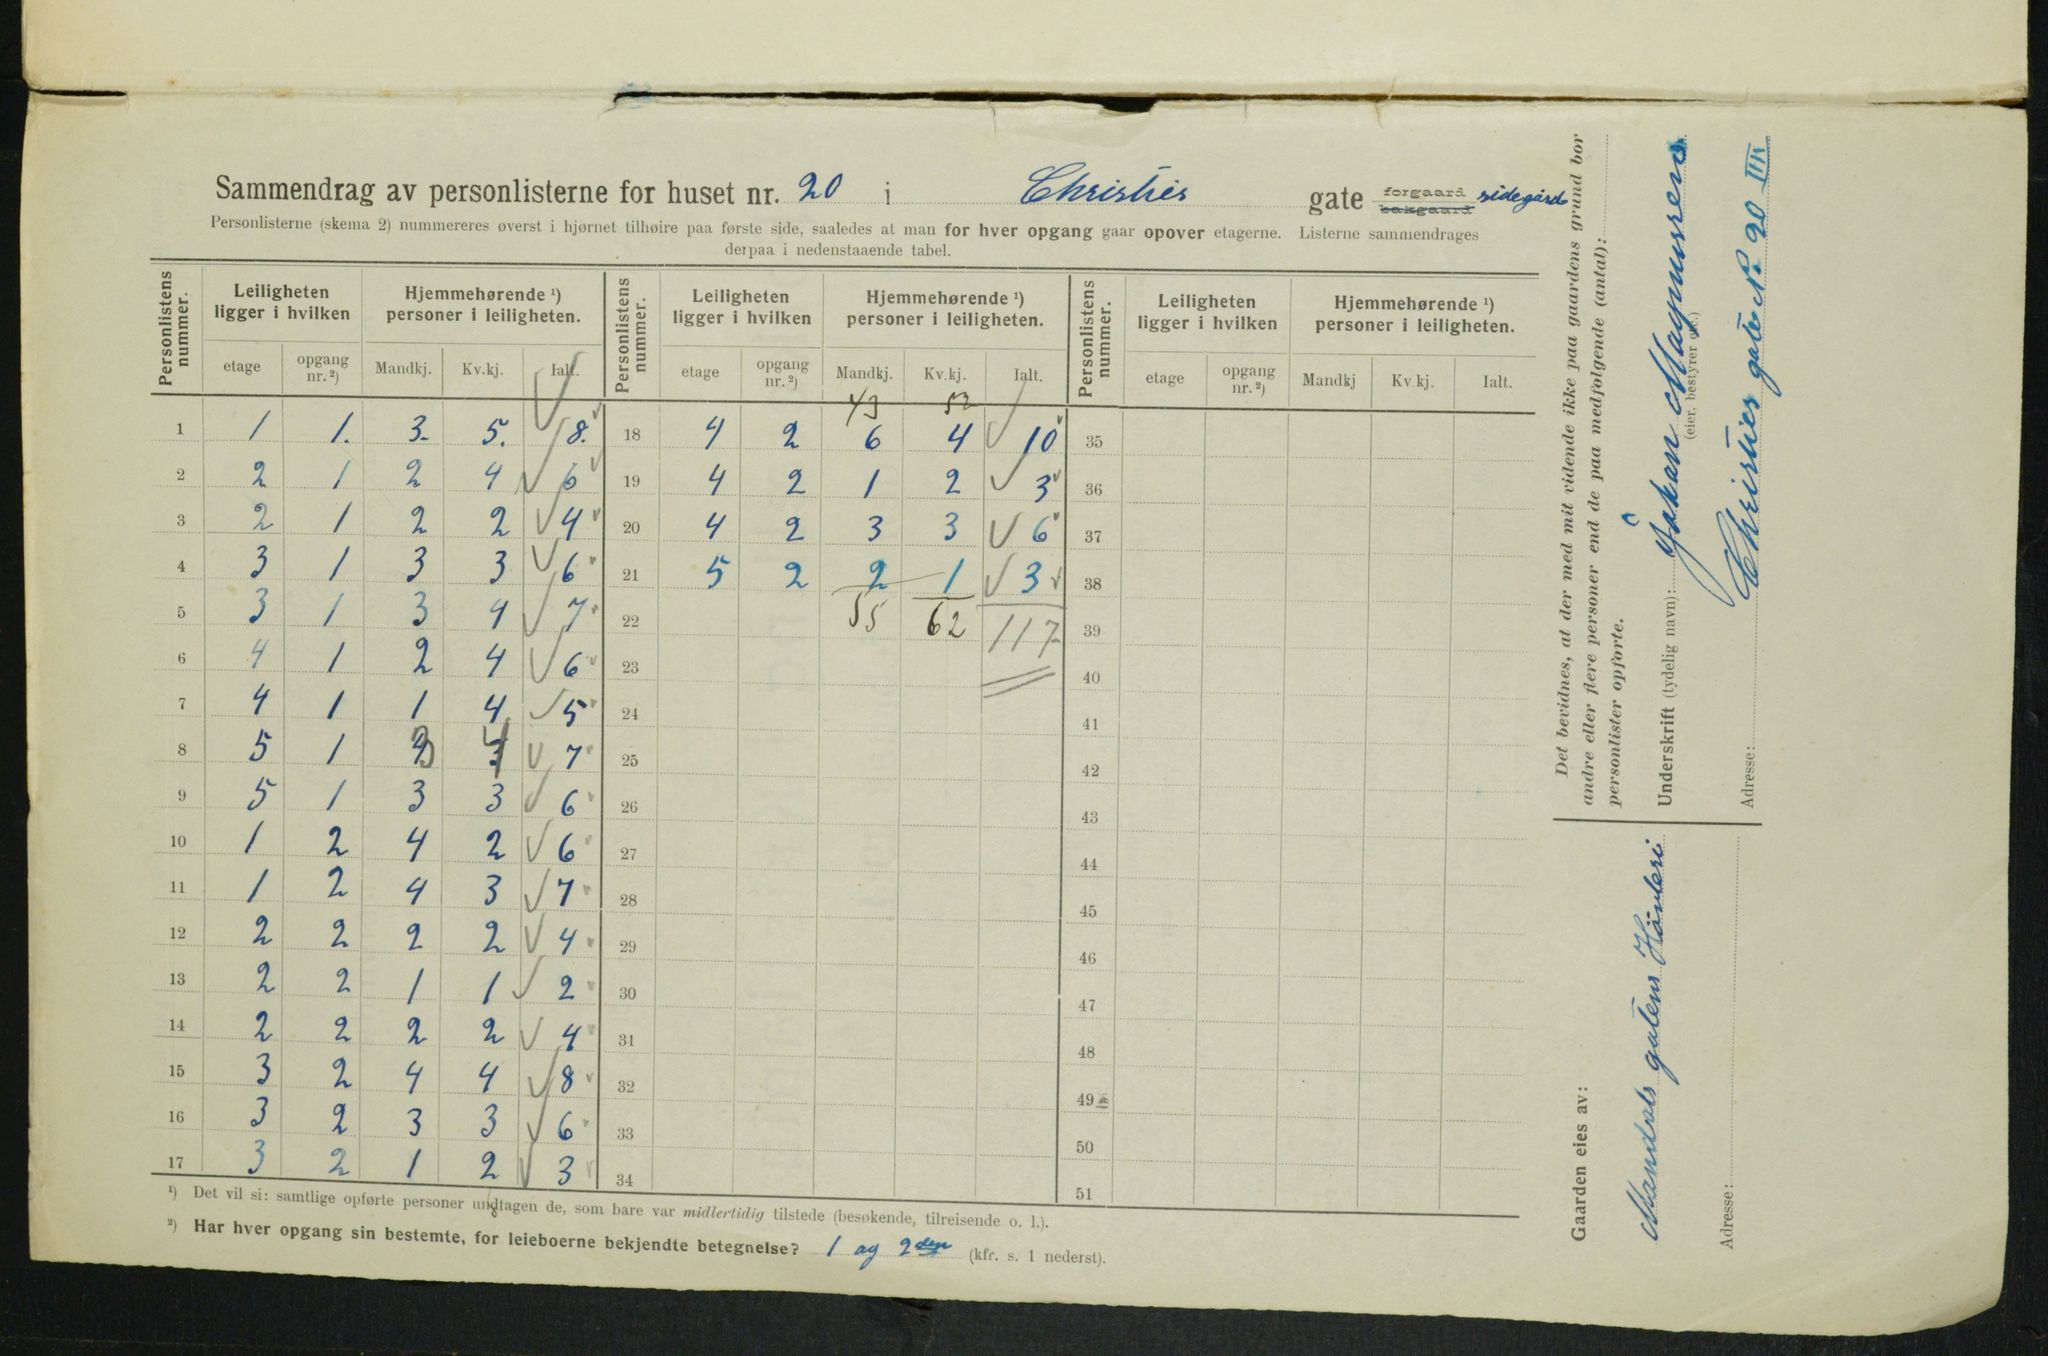 Sammendrag av personlisterne for huset nr. 20 i Christies gate forgaard bakgaard sidegård
Personlisterne (skema 2) nummereres øverst i hjørnet tilhøire paa første side, saaledes at man for hver opgang gaar opover etagerne. Listerne sammendrages
derpaa i nedenstaaende tabel.
Personlistens nummer. Leiligheten ligger i hvilken Hjemmehørende ¹) personer i leiligheten. Personlistens nummer. Leiligheten ligger i hvilken Hjemmehørende ¹) personer i leiligheten. Personlistens nummer. Leiligheten ligger i hvilken Hjemmehørende ¹) personer i leiligheten.
etage opgang nr. ²) Mandkj. Kv.kj. Ialt. etage opgang nr. ²) Mandkj. Kv.kj. Ialt. etage opgang nr. ²) Mandkj Kv.kj. Ialt.
43 52
1 1 1. 3. 5. 8. 18 4 2 6 4 10 35
2 2 1 2 4 6 19 4 2 1 2 3 36
3 2 1 2 2 4 20 4 2 3 3 6 37
4 3 1 3 3 6 21 5 2 2 1 3 38
5 3 1 3 4 7 22 55 62 117 39
6 4 1 2 4 6 23 40
7 4 1 1 4 5 24 41
8 5 1 3 4 7 25 42
9 5 1 3 3 6 26 43
10 1 2 4 2 6 27 44
11 1 2 4 3 7 28 45
12 2 2 2 2 4 29 46
13 2 2 1 1 2 30 47
14 2 2 2 2 4 31 48
15 3 2 4 4 8 32 49
16 3 2 3 3 6 33 50
17 3 2 1 2 3 34 51
¹) Det vil si: samtlige opførte personer undtagen de, som bare var midlertidig tilstede (besøkende, tilreisende o. l.).
²) Har hver opgang sin bestemte, for leieboerne bekjendte betegnelse? 1 og 2den (kfr. s. 1 nederst).
Det bevidnes, at der med mit vidende ikke paa gaardens grund bor
andre eller flere personer end de paa medfølgende (antal):
personlister opførte.
Underskrift (tydelig navn): Håkan Magnusren
(eier, bestyrer etc.)
Adresse: Christies gate No 20 III
Gaarden eies av:
Mandals gatens
Adresse: